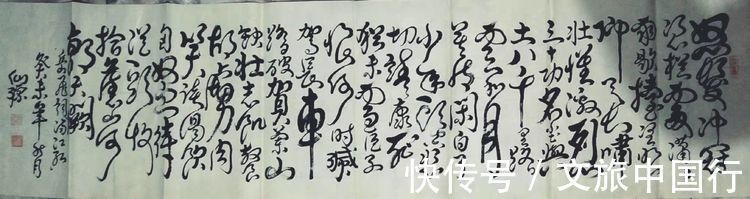 怒髮冲冠
凭栏处潇潇
雨歇抬望眼
仰天长啸
壮怀激烈
三十功名尘与
土八千里路
云和月
莫等闲白了
少年头空悲
切靖康耻
犹未雪臣子
恨何时灭
驾长车
踏破贺兰山
缺壮志饥餐
胡虏肉
笑谈渴饮
匈奴血待
从头收
拾旧山河
朝天阙
岳飞词满江红
癸未年秋月
快传号 / 文旅中国行